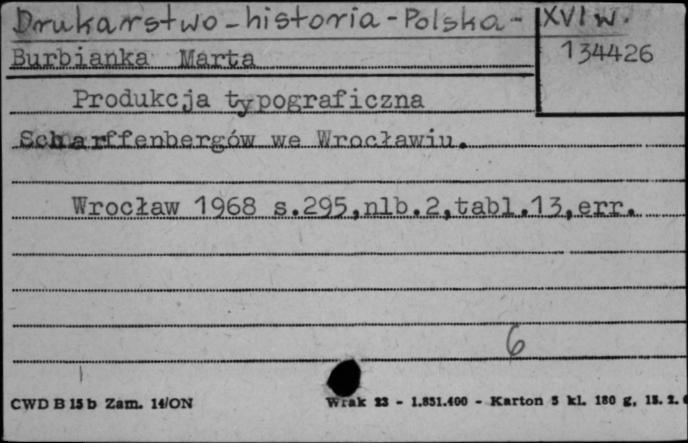 Drukarstwo - historia - Polska - XVI w.
134426
Burbianka Marta
Produkcja typograficzna
Scharffenbergów we Wrocławiu.
Wrocław 1968 s.295,nlb.2,tabl.13,err.
6
CWD B 15 b Zam. 14/ON
Wrak 23 - 1.831.400 - Karton 5 kl. 180 g, 15. 2.